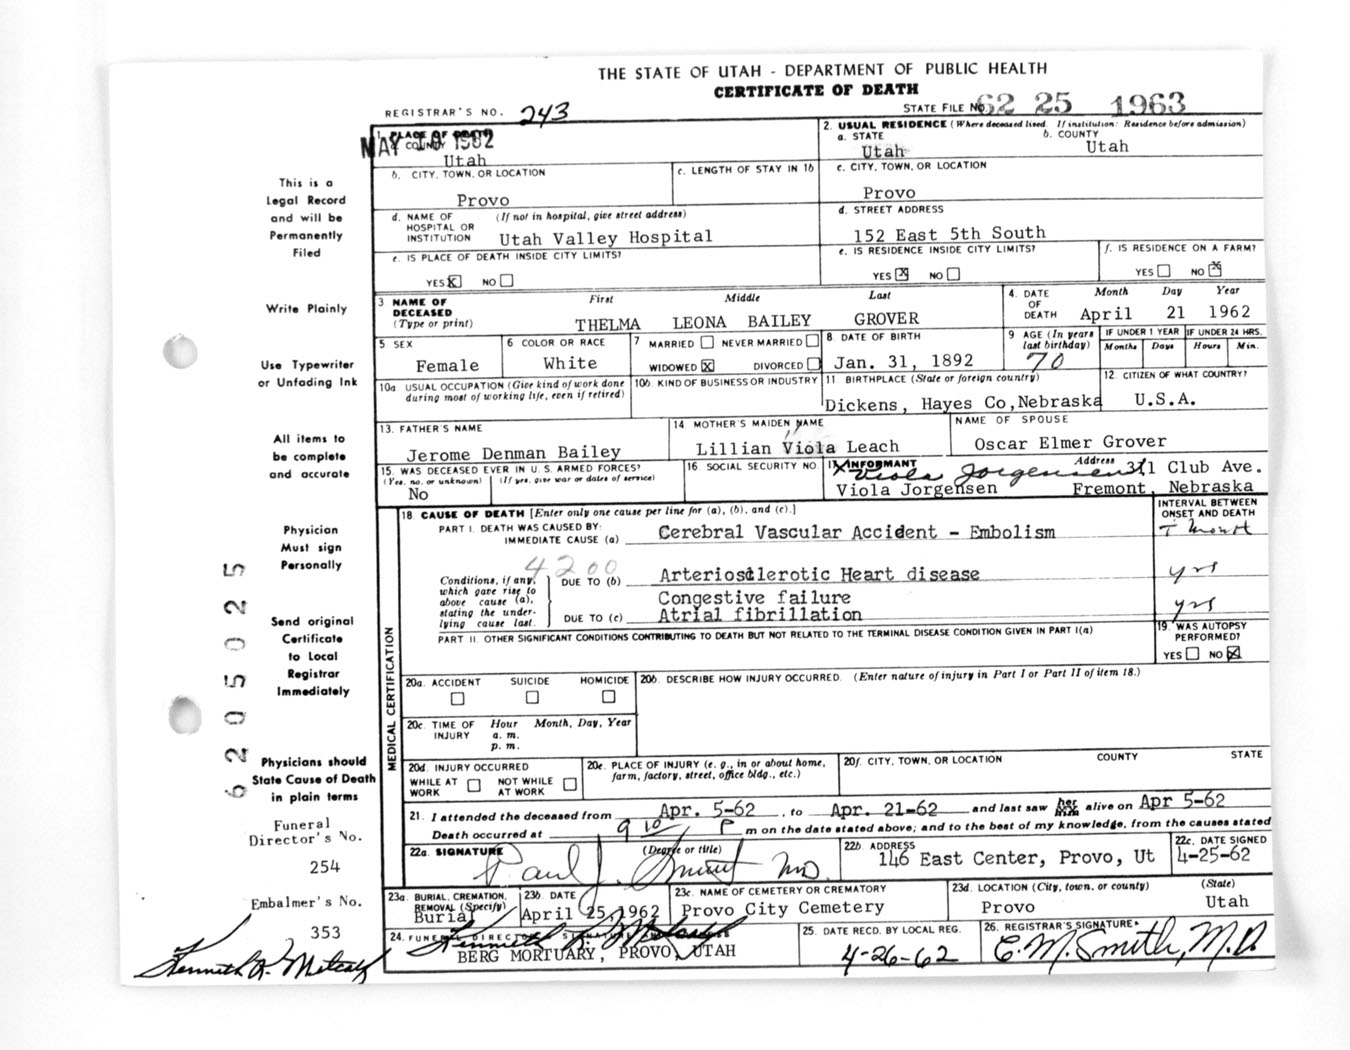 THE STATE OF UTAH - DEPARTMENT OF PUBLIC HEALTH
CERTIFICATE OF DEATH
REGISTRAR'S NO. 243
STATE FILE NO. 62 25 1963
1. PLACE OF DEATH
a. COUNTY
MAY 10 1962
Utah
2. USUAL RESIDENCE (Where deceased lived. If institution: Residence before admission)
a. STATE b. COUNTY
Utah Utah
b. CITY, TOWN, OR LOCATION
Provo
c. LENGTH OF STAY IN 1b
c. CITY, TOWN, OR LOCATION
Provo
d. NAME OF HOSPITAL OR INSTITUTION (If not in hospital, give street address)
Utah Valley Hospital
d. STREET ADDRESS
152 East 5th South
e. IS PLACE OF DEATH INSIDE CITY LIMITS?
YES X NO
e. IS RESIDENCE INSIDE CITY LIMITS?
YES X NO
f. IS RESIDENCE ON A FARM?
YES NO X
3 NAME OF DECEASED (Type or print)
First Middle Last
THELMA LEONA BAILEY GROVER
4. DATE OF DEATH
Month Day Year
April 21 1962
5 SEX
Female
6 COLOR OR RACE
White
7 MARRIED NEVER MARRIED
WIDOWED X DIVORCED
8 DATE OF BIRTH
Jan. 31, 1892
9 AGE (In years last birthday)
70
IF UNDER 1 YEAR IF UNDER 24 HRS.
Months Days Hours Min.
10a USUAL OCCUPATION (Give kind of work done during most of working life, even if retired)
10b. KIND OF BUSINESS OR INDUSTRY
11. BIRTHPLACE (State or foreign country)
Dickens, Hayes Co, Nebraska
12 CITIZEN OF WHAT COUNTRY?
U.S.A.
13. FATHER'S NAME
Jerome Denman Bailey
14 MOTHER'S MAIDEN NAME
Lillian Viola Leach
NAME OF SPOUSE
Oscar Elmer Grover
15. WAS DECEASED EVER IN U. S. ARMED FORCES?
(Yes, no, or unknown) (If yes, give war or dates of service)
No
16 SOCIAL SECURITY NO.
17 INFORMANT Address
Viola Jorgensen 311 Club Ave.
Viola Jorgensen Fremont, Nebraska
18. CAUSE OF DEATH [Enter only one cause per line for (a), (b), and (c).]
INTERVAL BETWEEN ONSET AND DEATH
PART I. DEATH WAS CAUSED BY:
IMMEDIATE CAUSE (a) Cerebral Vascular Accident - Embolism
4200
Conditions, if any, which gave rise to above cause (a), stating the underlying cause last.
DUE TO (b) Arteriosclerotic Heart disease yrs
Congestive failure
DUE TO (c) Atrial fibrillation yrs
PART II. OTHER SIGNIFICANT CONDITIONS CONTRIBUTING TO DEATH BUT NOT RELATED TO THE TERMINAL DISEASE CONDITION GIVEN IN PART I(a)
19. WAS AUTOPSY PERFORMED?
YES NO X
20a. ACCIDENT SUICIDE HOMICIDE
20b. DESCRIBE HOW INJURY OCCURRED. (Enter nature of injury in Part I or Part II of item 18.)
20c. TIME OF INJURY Hour Month, Day, Year
a. m.
p. m.
20d. INJURY OCCURRED
WHILE AT WORK NOT WHILE AT WORK
20e. PLACE OF INJURY (e. g., in or about home, farm, factory, street, office bldg., etc.)
20f. CITY, TOWN, OR LOCATION COUNTY STATE
21. I attended the deceased from Apr. 5-62, to Apr. 21-62 and last saw her him alive on Apr 5-62
Death occurred at 9 10 P m on the date stated above; and to the best of my knowledge, from the causes stated
22a. SIGNATURE (Degree or title)
Paul J. MD.
22b. ADDRESS
146 East Center, Provo, Ut
22c. DATE SIGNED
4-25-62
23a. BURIAL, CREMATION, REMOVAL (Specify)
Burial
23b. DATE
April 25, 1962
23c. NAME OF CEMETERY OR CREMATORY
Provo City Cemetery
23d. LOCATION (City, town, or county) (State)
Provo Utah
24. FUNERAL DIRECTOR'S SIGNATURE AND ADDRESS
BERG MORTUARY, PROVO, UTAH
25. DATE RECD. BY LOCAL REG.
4-26-62
26. REGISTRAR'S SIGNATURE
E. M. Smith, M.D.
MEDICAL CERTIFICATION
This is a
Legal Record
and will be
Permanently
Filed
Write Plainly
Use Typewriter
or Unfading Ink
All items to
be complete
and accurate
Physician
Must sign
Personally
Send original
Certificate
to Local
Registrar
Immediately
Physicians should
State Cause of Death
in plain terms
Funeral
Director's No.
254
Embalmer's No.
353
Kenneth R. Metcalf
6205025